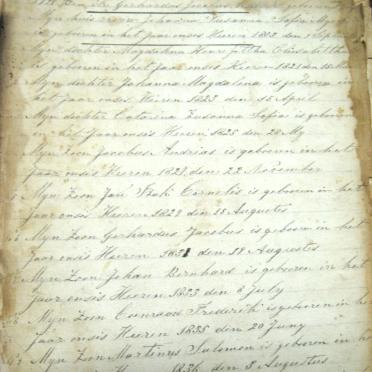 Gerhardus Jacobus
Myn huis vrou Johanna Susanna Sofia
is geboren in het jaar onses Heeren 1802 den
Myn dochter Magdalena Henrijettha
is geboren in het jaar onses Heeren 1821 den 18
Myn dochter Johanna Magdalena is geboren in
het jaar onses Heeren 1823 den 15 April
Myn dochter Catarina Susanna Sofia is geboren
in het jaar onsis Heeren 1825 den 28 My
Myn Zoon Jacobus Andrias is geboren in het
jaar onsis Heeren 1827 den 22 November
Myn Zoon Jan Cornelis is geboren in het
jaar onsis Heeren 1829 den 18 Augustes
Myn Zoon Gerhardus Jacobus is geboren in het
jaar onsis Heeren 1831 den 18 Augustes
Myn Zoon Johan Bernhard is geboren in het
jaar onsis Heeren 1833 den 6 July
Myn Zoon Coenraad Frederik is geboren in he
jaar onsis Heeren 1835 den 20 Juny
Myn Zoon Martinys Salomon is geboren in he
Heeren 1836 den 8 Augustus